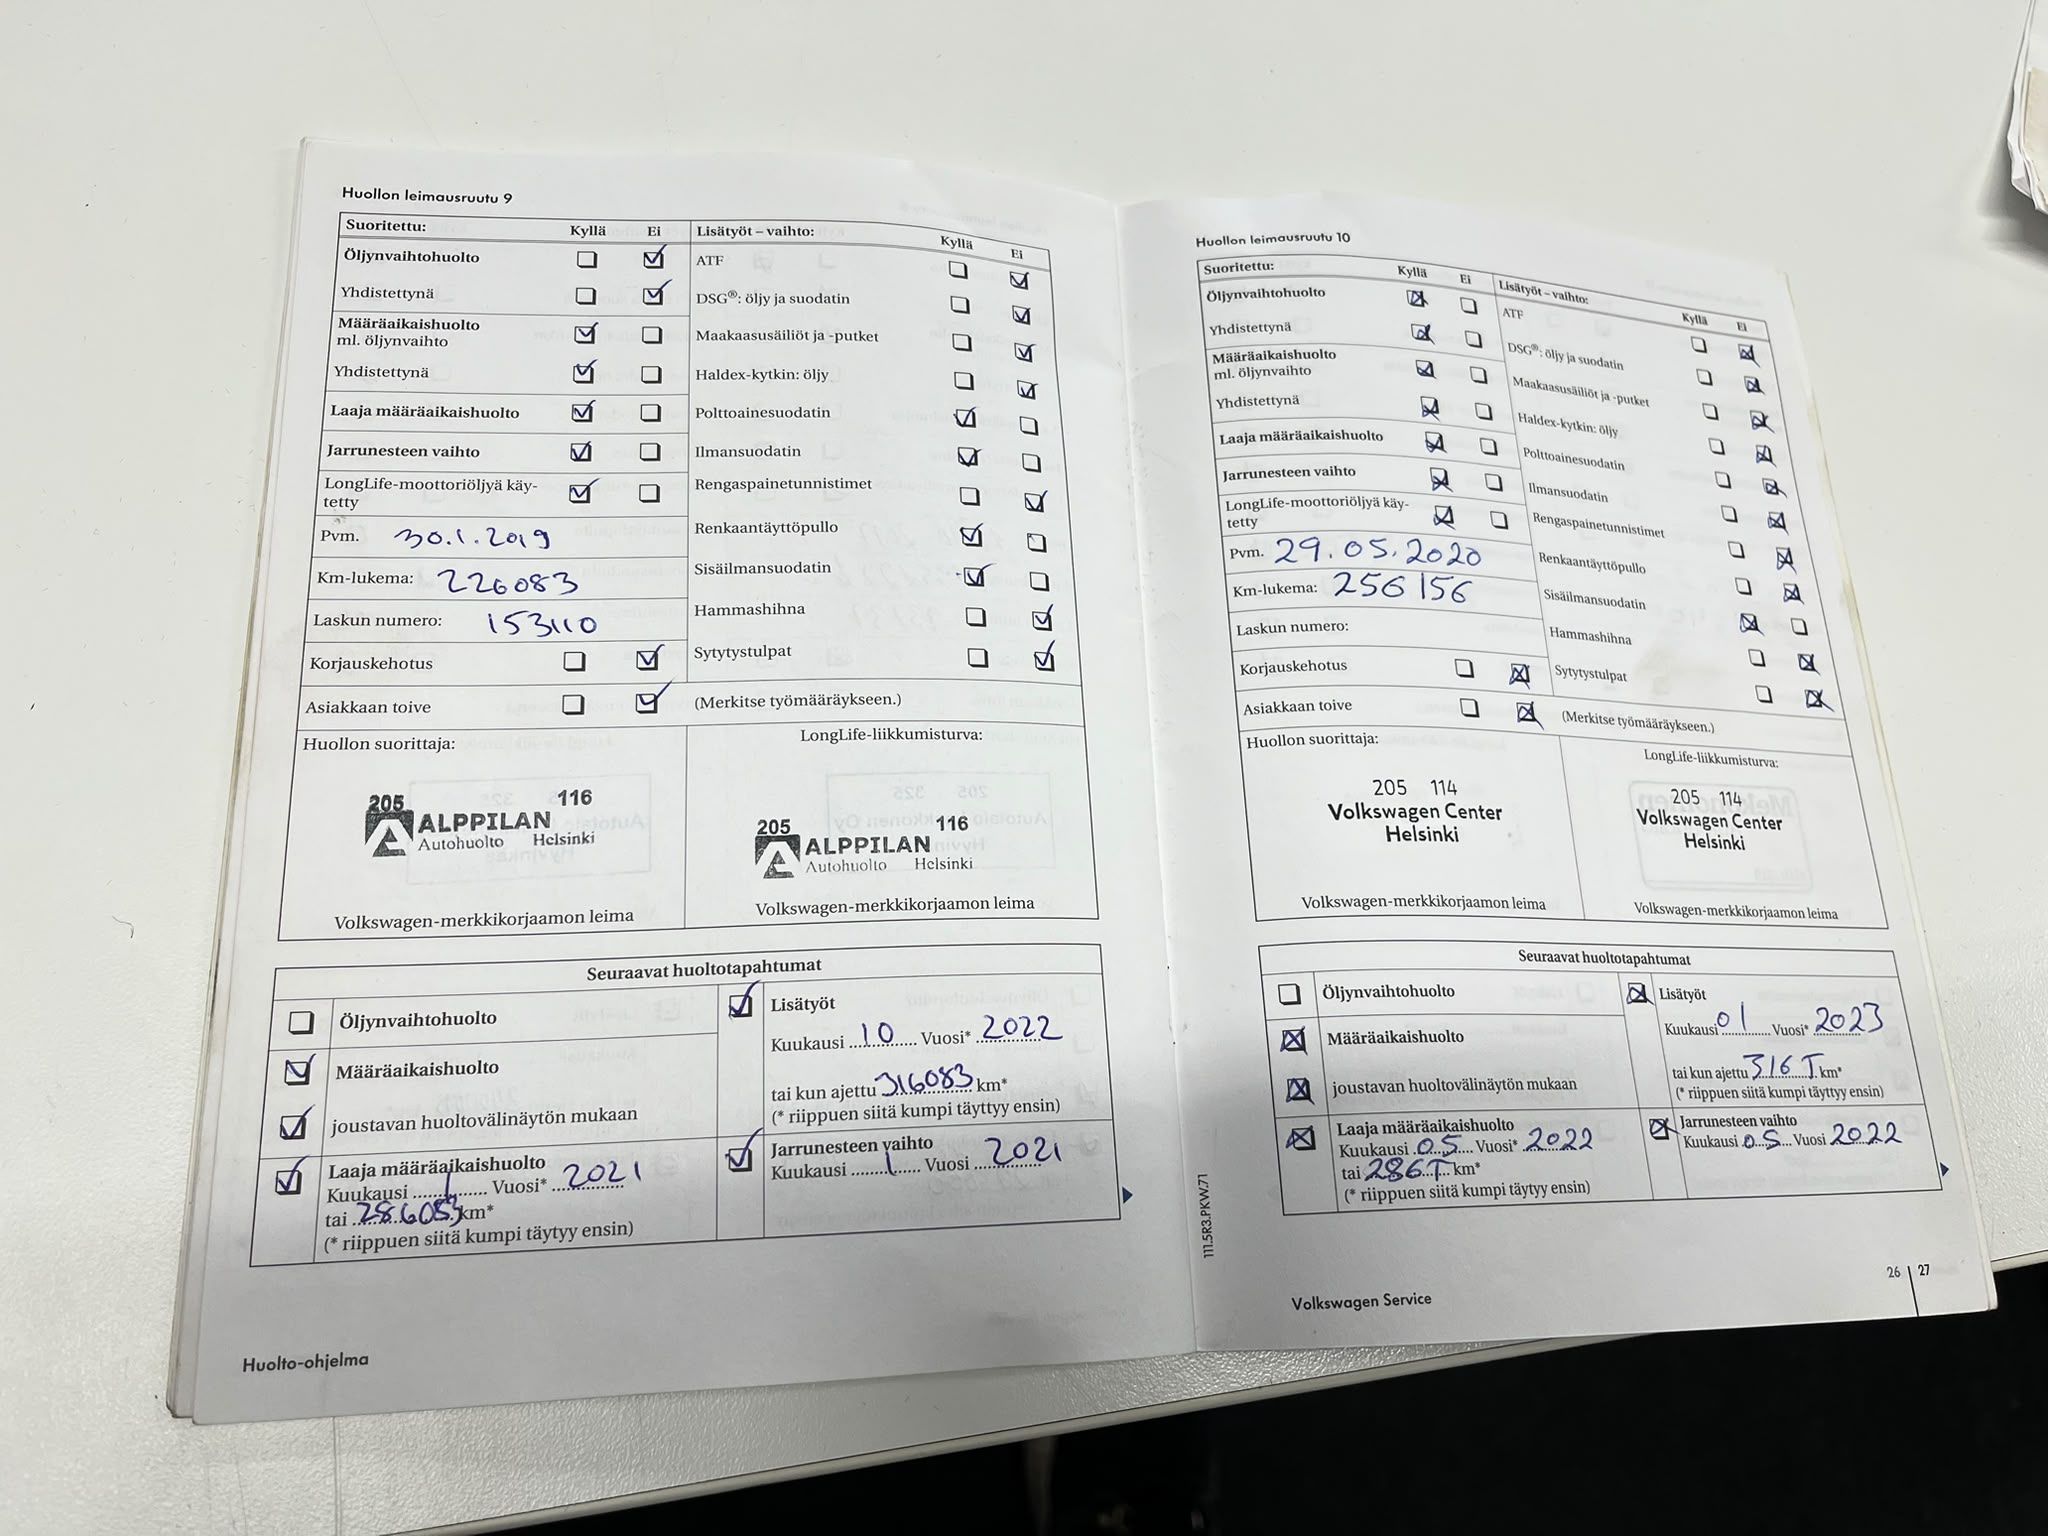 Huollon leimausruutu 9
Suoritettu: Kyllä Ei
Öljynvaihtohuolto
Yhdistettynä
Määräaikaishuolto
ml. öljynvaihto
Yhdistettynä
Laaja määräaikaishuolto
Jarrunesteen vaihto
LongLife-moottoriöljyä käy-
tetty
Pvm. 30.1.2019
Km-lukema: 226083
Laskun numero: 153110
Korjauskehotus
Asiakkaan toive
Lisätyöt – vaihto: Kyllä Ei
ATF
DSG®: öljy ja suodatin
Maakaasusäiliöt ja -putket
Haldex-kytkin: öljy
Polttoainesuodatin
Ilmansuodatin
Rengaspainetunnistimet
Renkaantäyttöpullo
Sisäilmansuodatin
Hammashihna
Sytytystulpat
(Merkitse työmääräykseen.)
Huollon suorittaja:
205 116
ALPPILAN
Autohuolto Helsinki
Volkswagen-merkkikorjaamon leima
LongLife-liikkumisturva:
205 116
ALPPILAN
Autohuolto Helsinki
Volkswagen-merkkikorjaamon leima
Seuraavat huoltotapahtumat
Öljynvaihtohuolto
Määräaikaishuolto
joustavan huoltovälinäytön mukaan
Laaja määräaikaishuolto
Kuukausi 1 Vuosi* 2021
tai 286083 km*
(* riippuen siitä kumpi täytyy ensin)
Lisätyöt
Kuukausi 10 Vuosi* 2022
tai kun ajettu 316083 km*
(* riippuen siitä kumpi täyttyy ensin)
Jarrunesteen vaihto
Kuukausi 1 Vuosi 2021
Huolto-ohjelma
Huollon leimausruutu 10
Suoritettu: Kyllä Ei
Öljynvaihtohuolto
Yhdistettynä
Määräaikaishuolto
ml. öljynvaihto
Yhdistettynä
Laaja määräaikaishuolto
Jarrunesteen vaihto
LongLife-moottoriöljyä käy-
tetty
Pvm. 29.05.2020
Km-lukema: 256156
Laskun numero:
Korjauskehotus
Asiakkaan toive
Lisätyöt – vaihto: Kyllä Ei
ATF
DSG®: öljy ja suodatin
Maakaasusäiliöt ja -putket
Haldex-kytkin: öljy
Polttoainesuodatin
Ilmansuodatin
Rengaspainetunnistimet
Renkaantäyttöpullo
Sisäilmansuodatin
Hammashihna
Sytytystulpat
(Merkitse työmääräykseen.)
Huollon suorittaja:
205 114
Volkswagen Center
Helsinki
Volkswagen-merkkikorjaamon leima
LongLife-liikkumisturva:
205 114
Volkswagen Center
Helsinki
Volkswagen-merkkikorjaamon leima
Seuraavat huoltotapahtumat
Öljynvaihtohuolto
Määräaikaishuolto
joustavan huoltovälinäytön mukaan
Laaja määräaikaishuolto
Kuukausi 05 Vuosi* 2022
tai 286T km*
(* riippuen siitä kumpi täytyy ensin)
Lisätyöt
Kuukausi 01 Vuosi* 2023
tai kun ajettu 316 T km*
(* riippuen siitä kumpi täyttyy ensin)
Jarrunesteen vaihto
Kuukausi 05 Vuosi 2022
111.5R3.PKW.71
Volkswagen Service
26 27